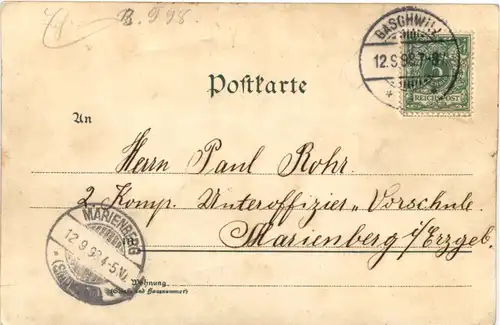 B. 998
BASCHWITZ
12.9.98.7-8
5
REICHSPOST
Postkarte
An
Herrn Paul Rohr.
2. Komp. Unteroffizier-Vorschule.
Marienberg i/Erzgeb.
MARIENBERG
12.9.98.4-5.N.
Wohnung
(Straße und Hausnummer)